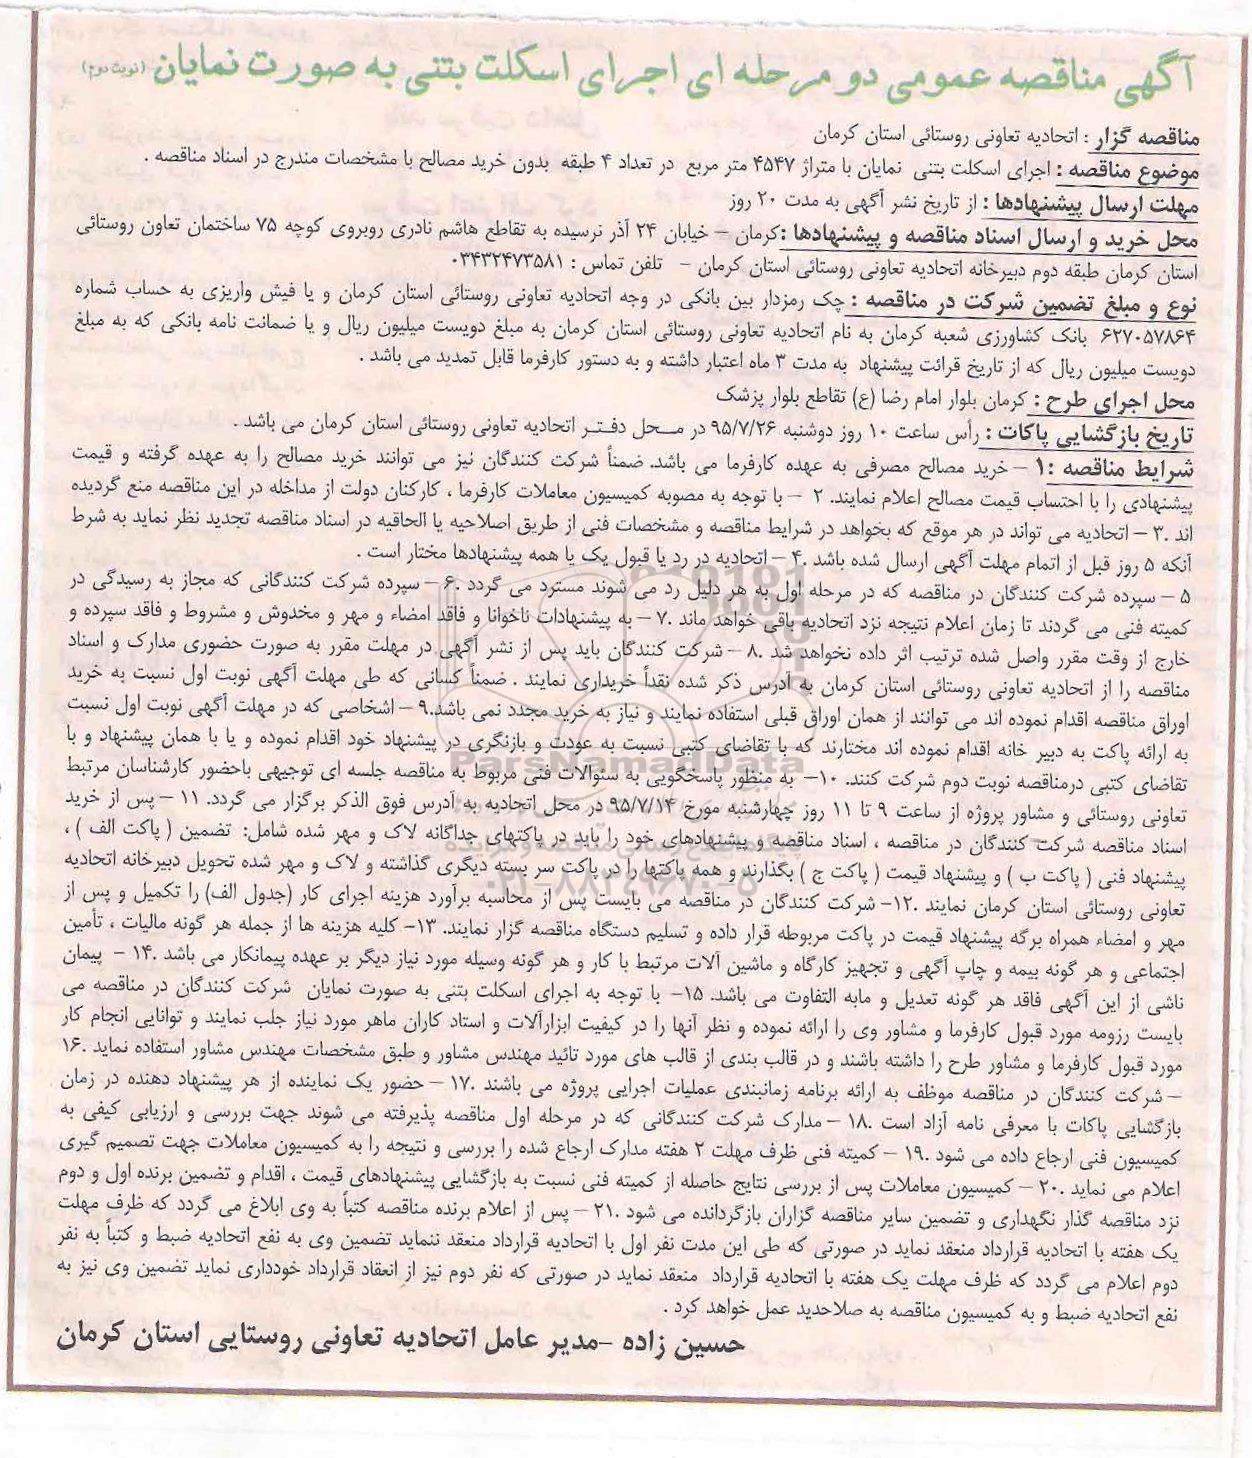 آگهی مناقصه عمومی دو مرحله ای اجرای اسکلت بتنی به صورت نمایان (نوبت دوم)
مناقصه گزار : اتحادیه تعاونی روستائی استان کرمان
موضوع مناقصه : اجرای اسکلت بتنی نمایان با متراژ ۴۵۴۷ متر مربع در تعداد ۴ طبقه بدون خرید مصالح با مشخصات مندرج در اسناد مناقصه .
مهلت ارسال پیشنهادها : از تاریخ نشر آگهی به مدت ۲۰ روز
محل خرید و ارسال اسناد مناقصه و پیشنهادها :کرمان – خیابان ۲۴ آذر نرسیده به تقاطع هاشم نادری روبروی کوچه ۷۵ ساختمان تعاون روستائی
استان کرمان طبقه دوم دبیرخانه اتحادیه تعاونی روستائی استان کرمان – تلفن تماس : ۰۳۴۳۲۴۷۳۵۸۱
نوع و مبلغ تضمین شرکت در مناقصه : چک رمزدار بین بانکی در وجه اتحادیه تعاونی روستائی استان کرمان و یا فیش واریزی به حساب شماره
۶۲۷۰۵۷۸۶۴ بانک کشاورزی شعبه کرمان به نام اتحادیه تعاونی روستائی استان کرمان به مبلغ دویست میلیون ریال و یا ضمانت نامه بانکی که به مبلغ
دویست میلیون ریال که از تاریخ قرائت پیشنهاد به مدت ۳ ماه اعتبار داشته و به دستور کارفرما قابل تمدید می باشد .
محل اجرای طرح : کرمان بلوار امام رضا (ع) تقاطع بلوار پزشک
تاریخ بازگشایی پاکات : رأس ساعت ۱۰ روز دوشنبه ۹۵/۷/۲۶ در محل دفتر اتحادیه تعاونی روستائی استان کرمان می باشد .
شرایط مناقصه :۱ – خرید مصالح مصرفی به عهده کارفرما می باشد. ضمناً شرکت کنندگان نیز می توانند خرید مصالح را به عهده گرفته و قیمت
پیشنهادی را با احتساب قیمت مصالح اعلام نمایند. ۲ – با توجه به مصوبه کمیسیون معاملات کارفرما ، کارکنان دولت از مداخله در این مناقصه منع گردیده
اند .۳ – اتحادیه می تواند در هر موقع که بخواهد در شرایط مناقصه و مشخصات فنی از طریق اصلاحیه یا الحاقیه در اسناد مناقصه تجدید نظر نماید به شرط
آنکه ۵ روز قبل از اتمام مهلت آگهی ارسال شده باشد .۴ – اتحادیه در رد یا قبول یک یا همه پیشنهادها مختار است .
۵ – سپرده شرکت کنندگان در مناقصه که در مرحله اول به هر دلیل رد می شوند مسترد می گردد .۶ – سپرده شرکت کنندگانی که مجاز به رسیدگی در
کمیته فنی می گردند تا زمان اعلام نتیجه نزد اتحادیه باقی خواهد ماند .۷ – به پیشنهادات ناخوانا و فاقد امضاء و مهر و مخدوش و مشروط و فاقد سپرده و
خارج از وقت مقرر واصل شده ترتیب اثر داده نخواهد شد .۸ – شرکت کنندگان باید پس از نشر آگهی در مهلت مقرر به صورت حضوری مدارک و اسناد
مناقصه را از اتحادیه تعاونی روستائی استان کرمان به آدرس ذکر شده نقداً خریداری نمایند . ضمناً کسانی که طی مهلت آگهی نوبت اول نسبت به خرید
اوراق مناقصه اقدام نموده اند می توانند از همان اوراق قبلی استفاده نمایند و نیاز به خرید مجدد نمی باشد.۹ – اشخاصی که در مهلت آگهی نوبت اول نسبت
به ارائه پاکت به دبیر خانه اقدام نموده اند مختارند که با تقاضای کتبی نسبت به عودت و بازنگری در پیشنهاد خود اقدام نموده و یا با همان پیشنهاد و با
تقاضای کتبی درمناقصه نوبت دوم شرکت کنند. ۱۰– به منظور پاسخگویی به سئوالات فنی مربوط به مناقصه جلسه ای توجیهی باحضور کارشناسان مرتبط
تعاونی روستائی و مشاور پروژه از ساعت ۹ تا ۱۱ روز چهارشنبه مورخ ۹۵/۷/۱۴ در محل اتحادیه به آدرس فوق الذکر برگزار می گردد. ۱۱ – پس از خرید
اسناد مناقصه شرکت کنندگان در مناقصه ، اسناد مناقصه و پیشنهادهای خود را باید در پاکتهای جداگانه لاک و مهر شده شامل: تضمین ( پاکت الف ) ،
پیشنهاد فنی ( پاکت ب ) و پیشنهاد قیمت ( پاکت ج ) بگذارند و همه پاکتها را در پاکت سر بسته دیگری گذاشته و لاک و مهر شده تحویل دبیرخانه اتحادیه
تعاونی روستائی استان کرمان نمایند .۱۲– شرکت کنندگان در مناقصه می بایست پس از محاسبه برآورد هزینه اجرای کار (جدول الف) را تکمیل و پس از
مهر و امضاء همراه برگه پیشنهاد قیمت در پاکت مربوطه قرار داده و تسلیم دستگاه مناقصه گزار نمایند. ۱۳– کلیه هزینه ها از جمله هر گونه مالیات ، تأمین
اجتماعی و هر گونه بیمه و چاپ آگهی و تجهیز کارگاه و ماشین آلات مرتبط با کار و هر گونه وسیله مورد نیاز دیگر بر عهده پیمانکار می باشد .۱۴ – پیمان
ناشی از این آگهی فاقد هر گونه تعدیل و مابه التفاوت می باشد. ۱۵– با توجه به اجرای اسکلت بتنی به صورت نمایان شرکت کنندگان در مناقصه می
بایست رزومه مورد قبول کارفرما و مشاور وی را ارائه نموده و نظر آنها را در کیفیت ابزارآلات و استاد کاران ماهر مورد نیاز جلب نمایند و توانایی انجام کار
مورد قبول کارفرما و مشاور طرح را داشته باشند و در قالب بندی از قالب های مورد تائید مهندس مشاور و طبق مشخصات مهندس مشاور استفاده نماید .۱۶
– شرکت کنندگان در مناقصه موظف به ارائه برنامه زمانبندی عملیات اجرایی پروژه می باشند .۱۷ – حضور یک نماینده از هر پیشنهاد دهنده در زمان
بازگشایی پاکات با معرفی نامه آزاد است .۱۸ – مدارک شرکت کنندگانی که در مرحله اول مناقصه پذیرفته می شوند جهت بررسی و ارزیابی کیفی به
کمیسیون فنی ارجاع داده می شود .۱۹ – کمیته فنی ظرف مهلت ۲ هفته مدارک ارجاع شده را بررسی و نتیجه را به کمیسیون معاملات جهت تصمیم گیری
اعلام می نماید .۲۰ – کمیسیون معاملات پس از بررسی نتایج حاصله از کمیته فنی نسبت به بازگشایی پیشنهادهای قیمت ، اقدام و تضمین برنده اول و دوم
نزد مناقصه گذار نگهداری و تضمین سایر مناقصه گزاران بازگردانده می شود .۲۱ – پس از اعلام برنده مناقصه کتباً به وی ابلاغ می گردد که ظرف مهلت
یک هفته با اتحادیه قرارداد منعقد نماید در صورتی که طی این مدت نفر اول با اتحادیه قرارداد منعقد ننماید تضمین وی به نفع اتحادیه ضبط و کتباً به نفر
دوم اعلام می گردد که ظرف مهلت یک هفته با اتحادیه قرارداد منعقد نماید در صورتی که نفر دوم نیز از انعقاد قرارداد خودداری نماید تضمین وی نیز به
نفع اتحادیه ضبط و به کمیسیون مناقصه به صلاحدید عمل خواهد کرد .
حسین زاده –مدیر عامل اتحادیه تعاونی روستایی استان کرمان
ParsNamadData
۰۲۱–۸۸۳۴۹۶۷۰–۵